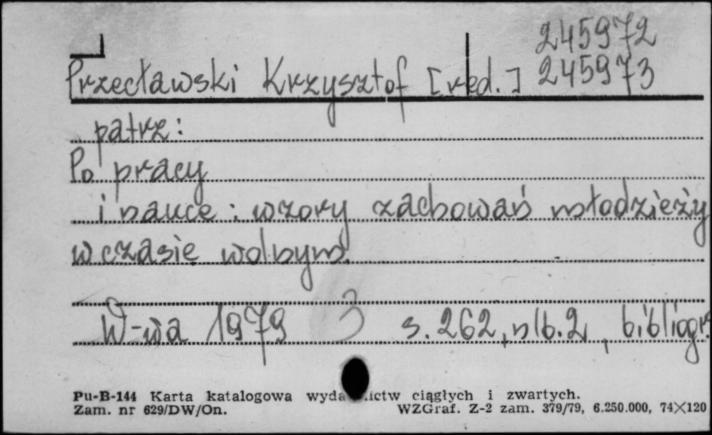 245972
Przecławski Krzysztof [red.] 245973
patrz:
Po pracy
i nauce : wzory zachowań młodzieży
w czasie wolnym.
W-wa 1979 3 s. 262, nlb. 2, bibliogr.
Pu-B-144 Karta katalogowa wyda ictw ciągłych i zwartych.
Zam. nr 629/DW/On. WZGraf. Z-2 zam. 379/79, 6.250.000, 74×120